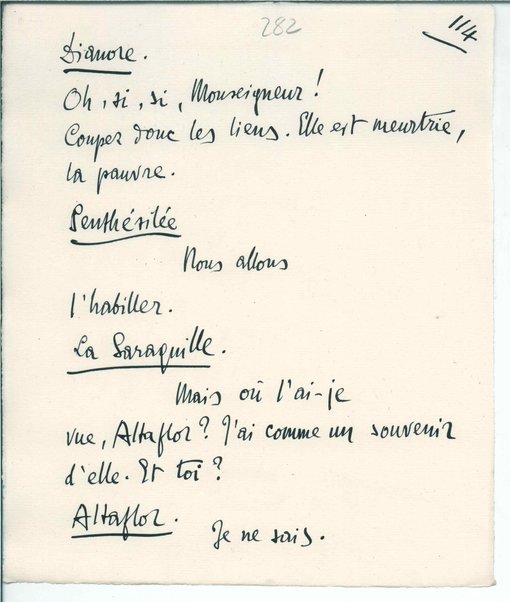 282
114
Dianore.
Oh, si, si, Monseigneur !
Coupez donc les liens. Elle est meurtrie,
la pauvre.
Penthésilée
Nous allons
l'habiller.
La Saraquille.
Mais où l'ai-je
vue, Altaflor ? J'ai comme un souvenir
d'elle. Et toi ?
Altaflor.
Je ne sais.